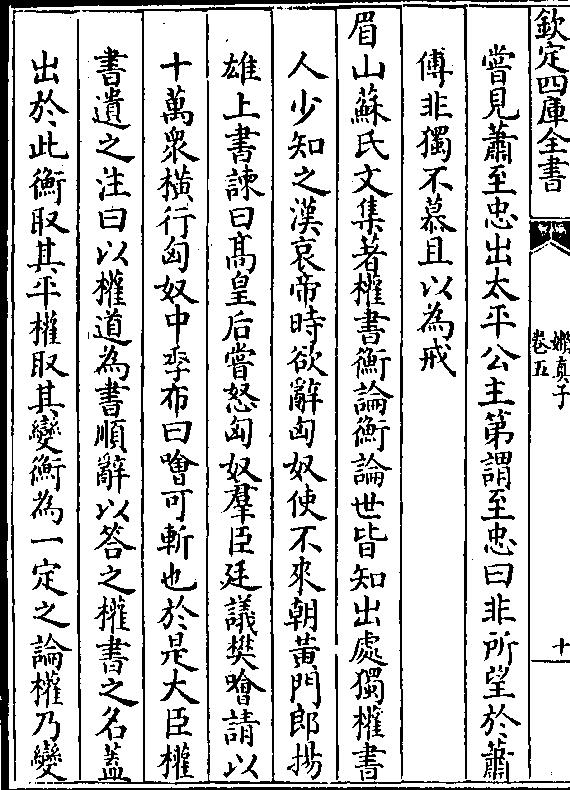 欽定四庫全書
嬾真子
卷五
十
嘗見蕭至忠出太平公主第謂至忠曰非所望於蕭
傅非獨不慕且以為戒
眉山蘇氏文集著權書衡論衡論世皆知出處獨權書
人少知之漢哀帝時欲辭匈奴使不來朝黃門郎揚
雄上書諫曰髙皇后嘗怒匈奴羣臣廷議樊噲請以
十萬衆橫行匈奴中季布曰噲可斬也於是大臣權
書遺之注曰以權道為書順辭以答之權書之名蓋
出於此衡取其平權取其變衡為一定之論權乃變